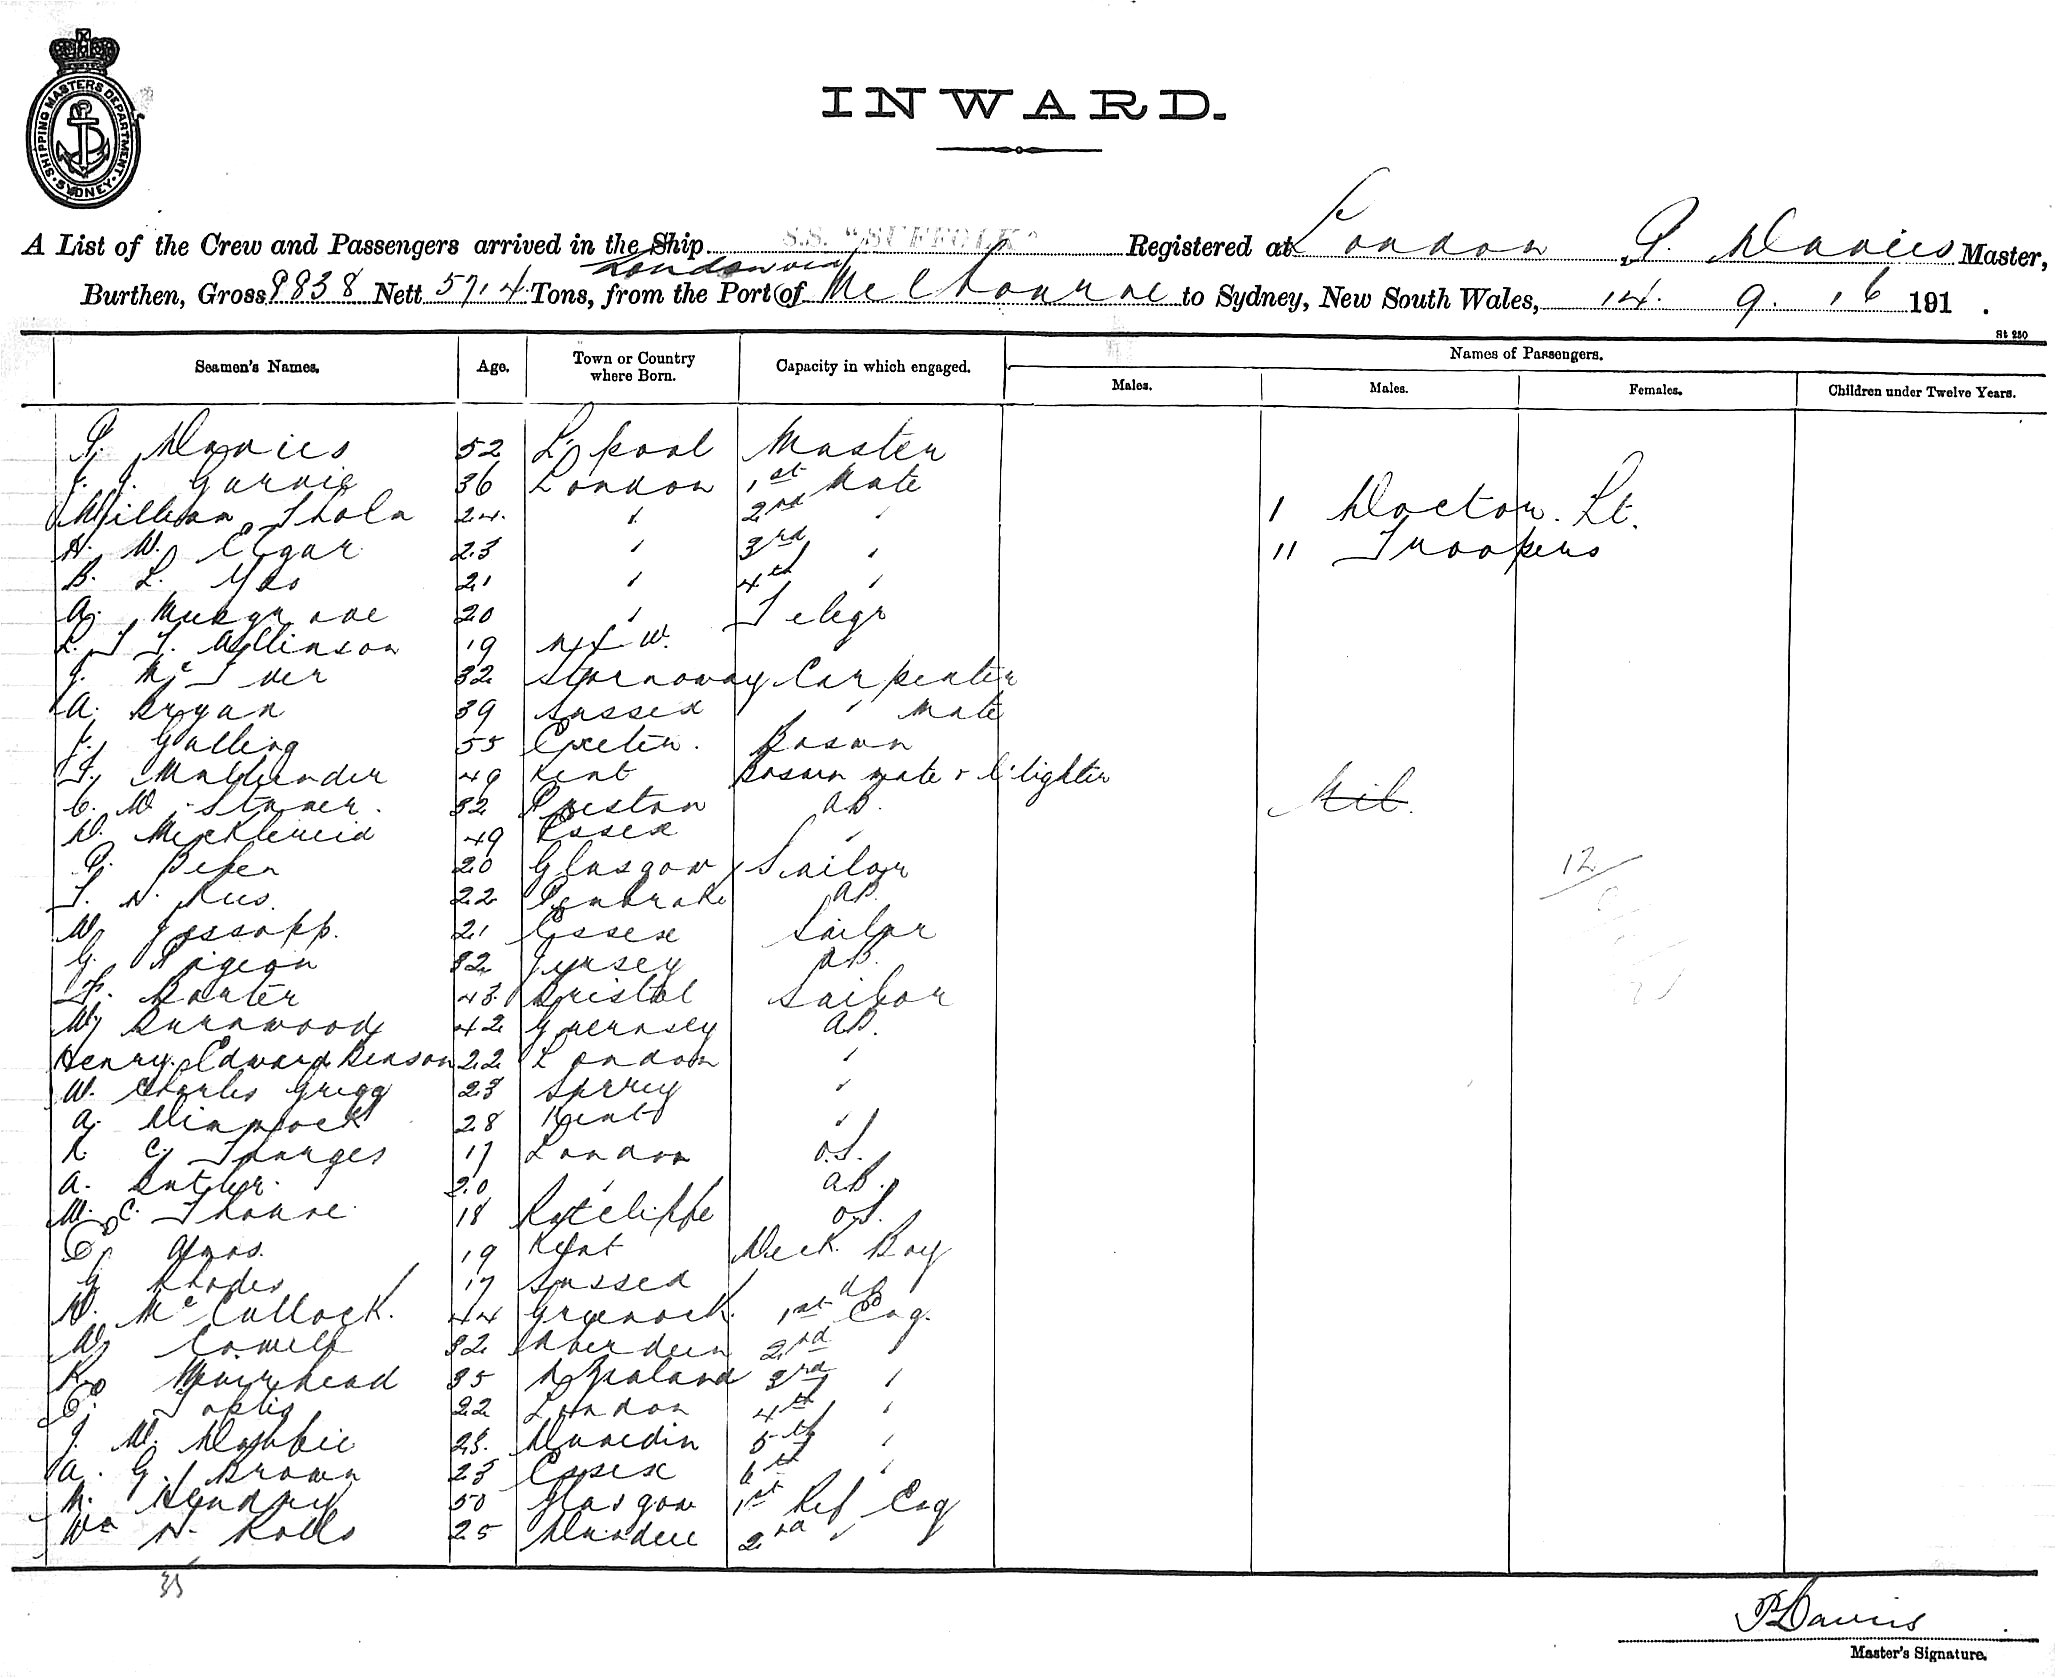 SHIPPING MASTERS DEPARTMENT · SYDNEY ·
INWARD.
A List of the Crew and Passengers arrived in the Ship S.S. "SUFFOLK" Registered at London P. Davies Master,
London via
Burthen, Gross 9838 Nett 5714 Tons, from the Port of Melbourne to Sydney, New South Wales, 14. 9. 16 191 .
St 250
Seamen's Names. Age. Town or Country where Born. Capacity in which engaged. Names of Passengers.
Males. Males. Females. Children under Twelve Years.
P. Davies 52 L'pool Master
36 London 1st Mate
William 24 " 2nd " 1 Doctor. Lt.
H. W. Elgar 23 " 3rd " 11 Troopers
B. L. 21 " 4th "
A. Musgrove 20 " Telegr
L. T. T. Allinson 19 N S W.
J. McIver 32 Stornoway Carpenter
A. Bryan 39 Sussex " Mate
J. Galling 55 Exeter. Bosun
T. 49 Kent Bosun mate & l. lighter
C. W. 32 Preston AB. Nil.
D. 49 Essex "
P. 20 Glasgow Sailor 12
T. D. Rees 22 Pembroke AB.
W. Jessopp. 21 Essex Sailor
G. Pigeon 32 Jersey AB.
F. Baxter 43 Bristol Sailor
W. Burnwood 42 Guernsey AB.
Henry Edward Benson 22 London "
W. Charles Grigg 23 Surrey "
A. Dimmock 28 Kent "
R. C. 17 London O.S.
A. Butler. 20 " AB.
W. C. Thorne. 18 Ratcliffe O.S.
E. Amos. 19 Kent Deck Boy
G. Rhodes 17 Sussex
D. McCullock. 44 Greenock. 1st Eng.
W. Cowell 32 Aberdeen 2nd "
R. Muirhead 35 N Zealand 3rd "
E. Toplis 22 London 4th "
J. W. 23. Dunedin 5th "
A. G. Brown 23 Essex 6th "
M. Hendry 50 Glasgow 1st Ref Eng
Wm D. Rolls 25 Dundee 2nd "
35
P Davies
Master's Signature.